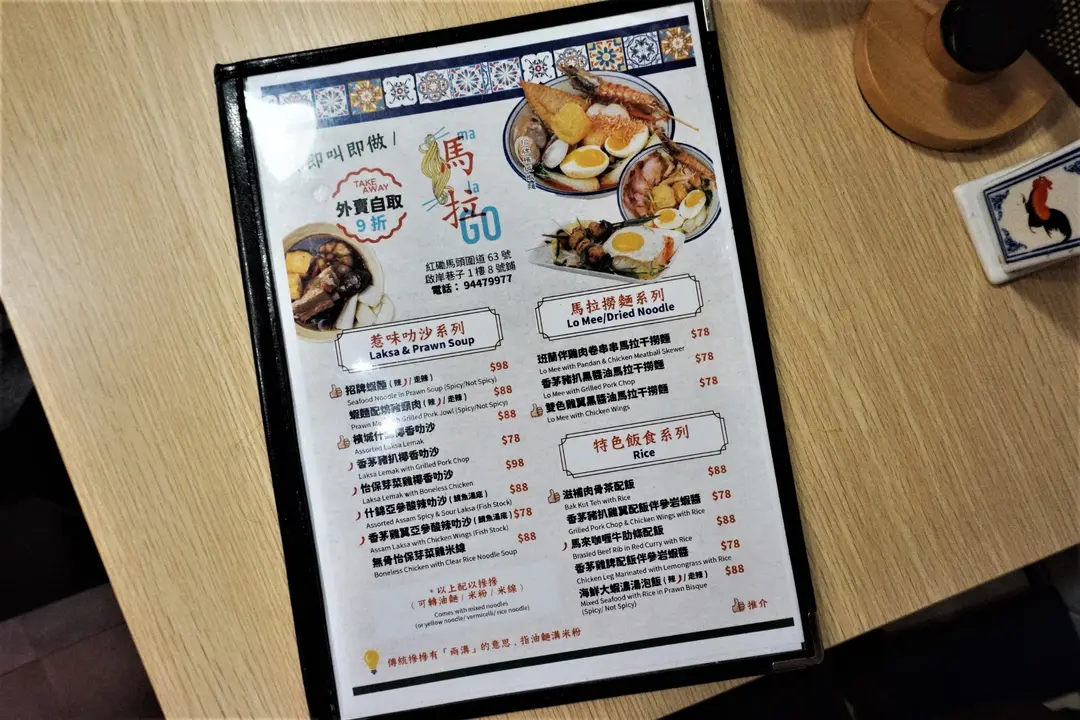 即叫即做 /
TAKE
AWAY
外賣自取
9 折
ma
馬
la
拉
GO
紅磡馬頭圍道 63 號
啟岸巷子 1 樓 8 號鋪
電話： 94479977
惹味叻沙系列
Laksa & Prawn Soup
招牌蝦麵 ( 辣 / 走辣 ) $98
Seafood Noodle in Prawn Soup (Spicy/Not Spicy)
蝦麵配燒豬頸肉 ( 辣 / 走辣 ) $88
Prawn Mee with Grilled Pork Jowl (Spicy/Not Spicy)
檳城什錦椰香叻沙 $88
Assorted Laksa Lemak
香茅豬扒椰香叻沙 $78
Laksa Lemak with Grilled Pork Chop
怡保芽菜雞椰香叻沙 $98
Laksa Lemak with Boneless Chicken
什錦亞參酸辣叻沙 ( 鯪魚湯底 ) $88
Assorted Assam Spicy & Sour Laksa (Fish Stock)
香茅雞翼亞參酸辣叻沙 ( 鯪魚湯底 ) $78
Assam Laksa with Chicken Wings (Fish Stock)
無骨怡保芽菜雞米線 $88
Boneless Chicken with Clear Rice Noodle Soup
* 以上配以摻摻
( 可轉油麵 / 米粉 / 米線 )
Comes with mixed noodles
(or yellow noodle/ vermicelli/ rice noodle)
傳統摻摻有「兩溝」的意思，指油麵溝米粉
馬拉撈麵系列
Lo Mee/Dried Noodle
班蘭伴雞肉卷串串馬拉干撈麵 $78
Lo Mee with Pandan & Chicken Meatball Skewer
香茅豬扒黑醬油馬拉干撈麵 $78
Lo Mee with Grilled Pork Chop
雙色雞翼黑醬油馬拉干撈麵 $78
Lo Mee with Chicken Wings
特色飯食系列
Rice
滋補肉骨茶配飯 $88
Bak Kut Teh with Rice
香茅豬扒雞翼配飯伴參岩蝦醬 $78
Grilled Pork Chop & Chicken Wings with Rice
馬來咖喱牛肋條配飯 $88
Brasled Beef Rib in Red Curry with Rice
香茅雞髀配飯伴參岩蝦醬 $78
Chicken Leg Marinated with Lemongrass with Rice
海鮮大蝦濃湯泡飯 ( 辣 / 走辣 ) $88
Mixed Seafood with Rice in Prawn Bisque
(Spicy/ Not Spicy)
推介